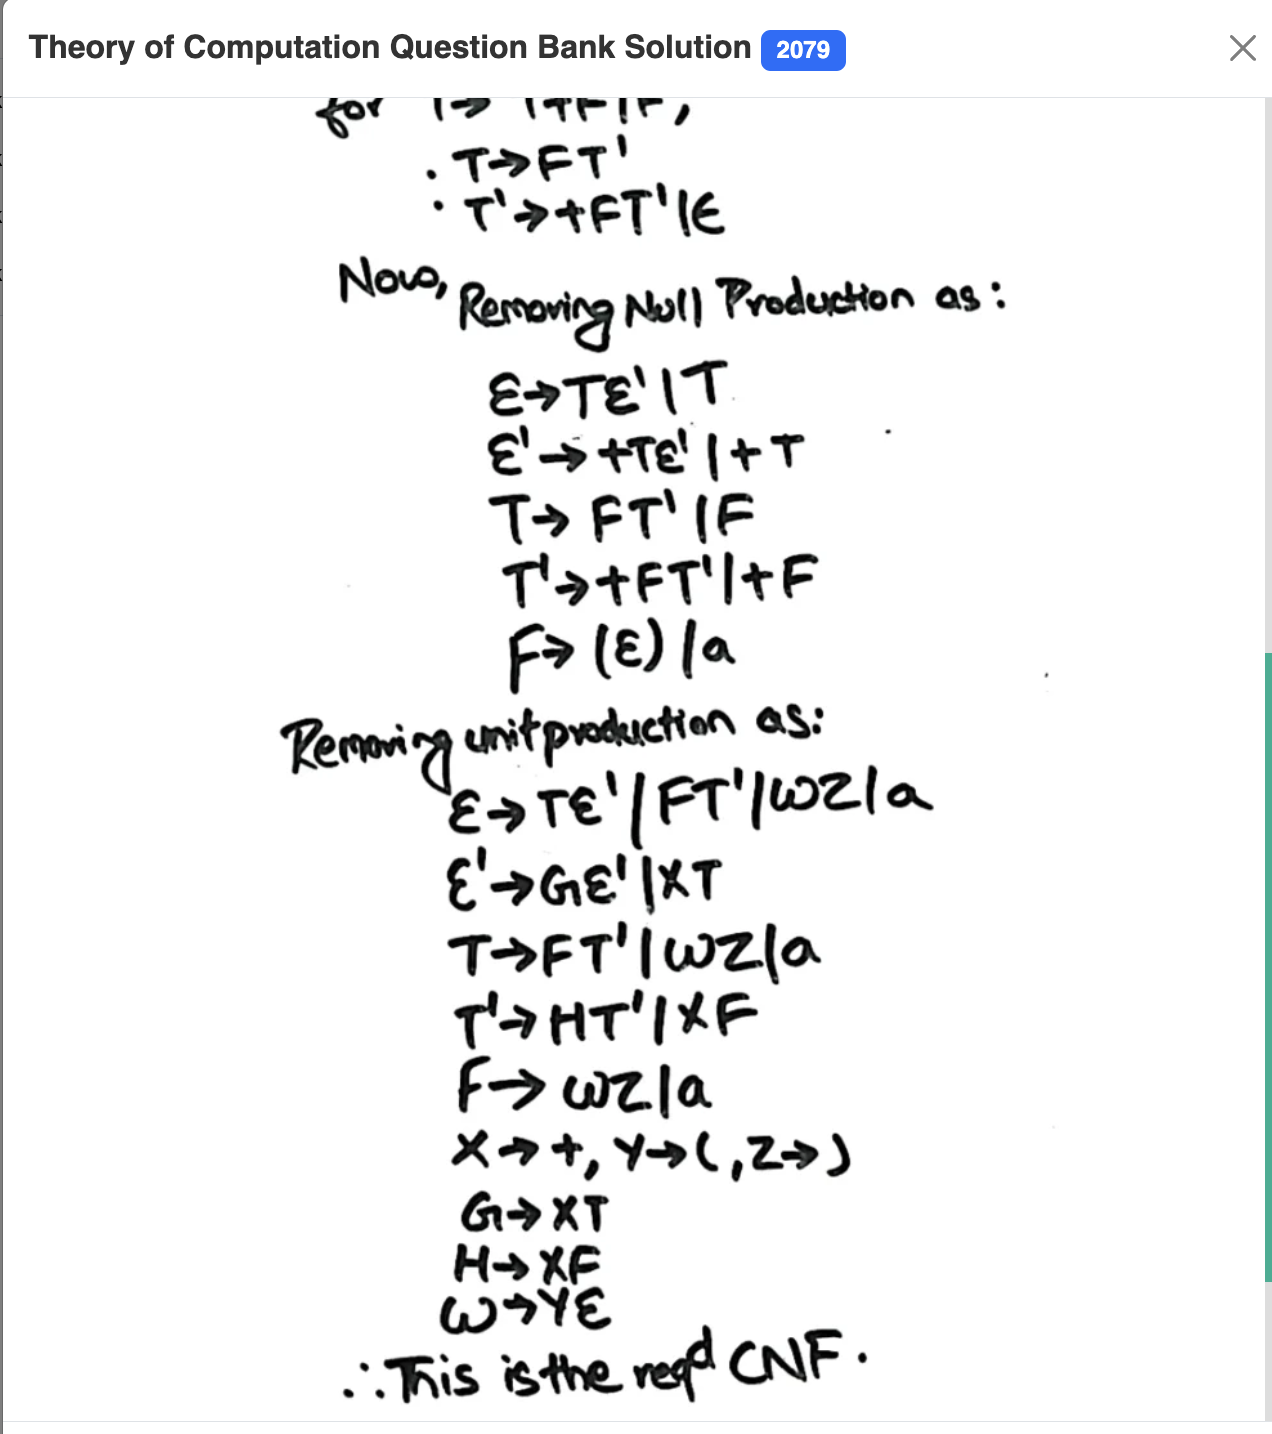 Theory of Computation Question Bank Solution 2079
for T→ T+F|F,
. T→FT'
· T'→+FT'|ϵ
Now, Removing Null Production as:
Ɛ→TƐ'|T
Ɛ'→+TƐ'|+T
T→FT'|F
T'→+FT'|+F
F→(Ɛ)|a
Removing unit production as:
Ɛ→TƐ'|FT'|WZ|a
Ɛ'→GƐ'|XT
T→FT'|WZ|a
T'→HT'|XF
F→WZ|a
X→+, Y→(, Z→)
G→XT
H→XF
W→YƐ
∴ This is the reqd CNF.